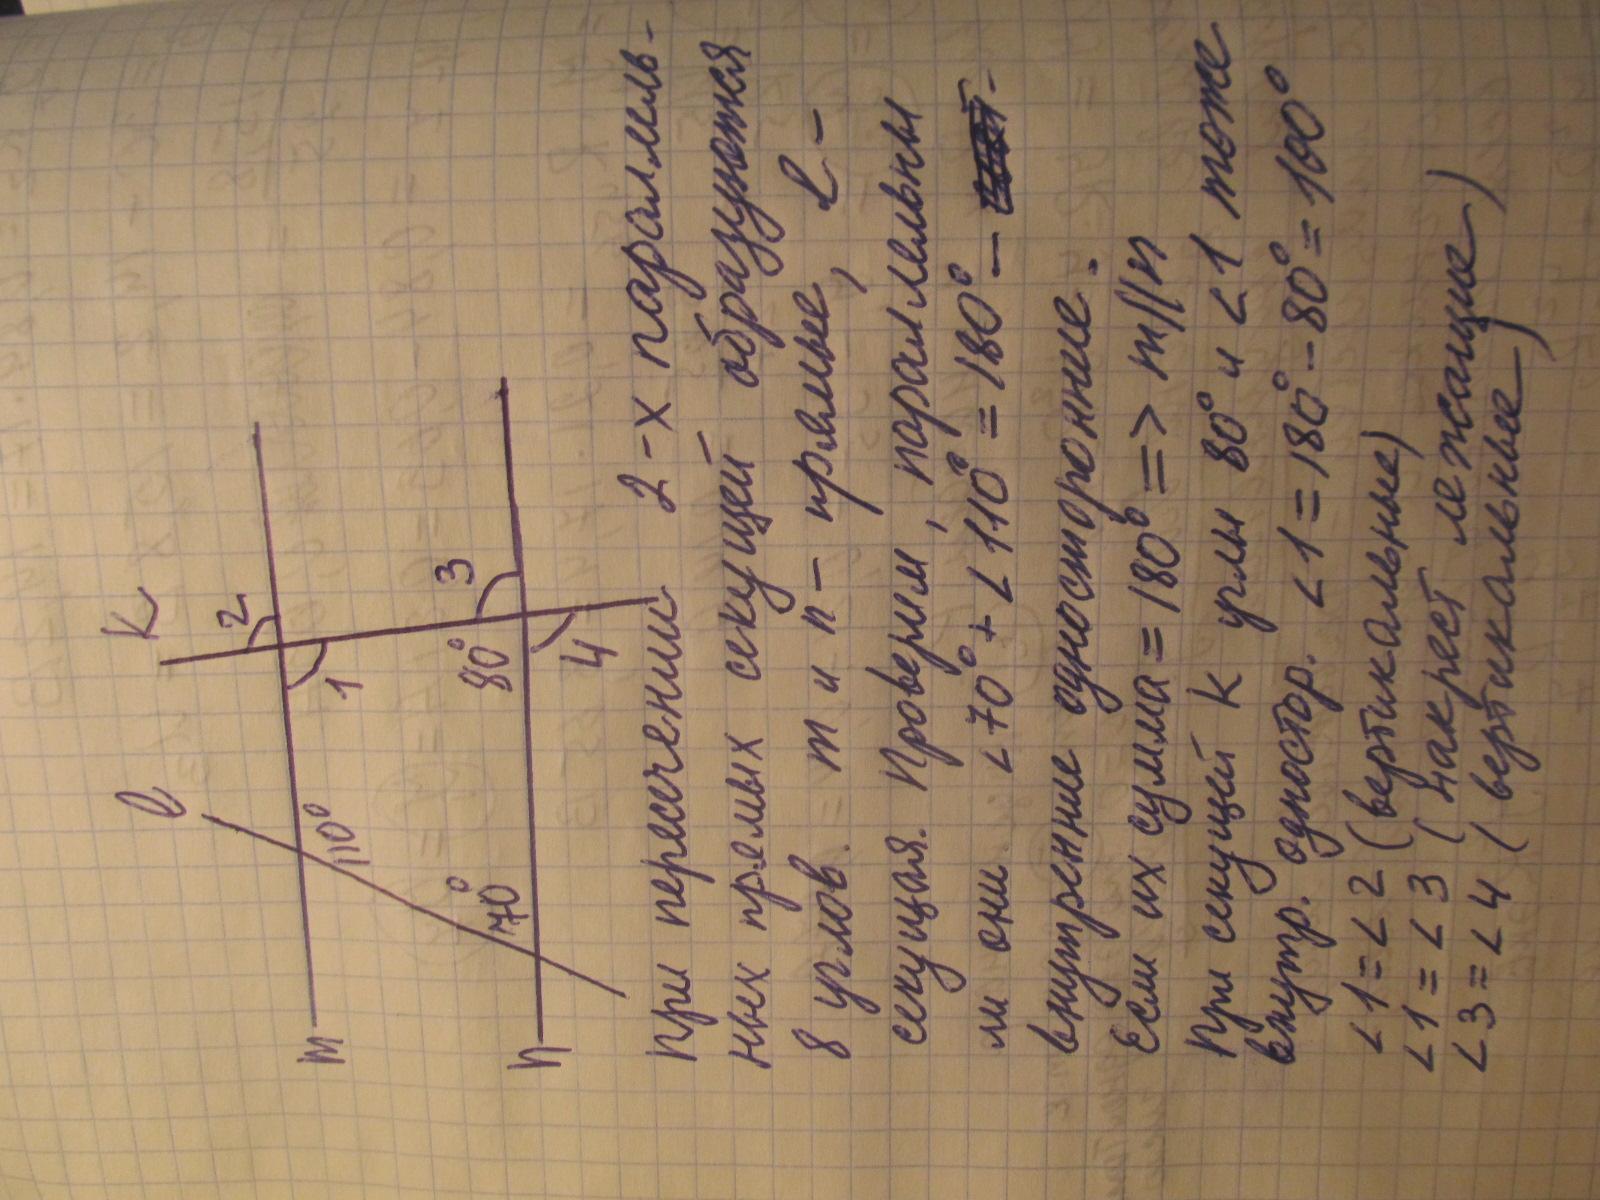 K
l
2
m
110°
1
3
80°
70°
n
4
При пересечении 2-х параллель-
ных прямых секущей образуются
8 углов. m и n - прямые, l -
секущая. Проверим, параллельны
ли они <70° + <110° = 180° -
внутренние односторонние.
Если их сумма = 180° => m||n
При секущей K углы 80° и <1 тоже
внутр. одностор. <1 = 180° - 80° = 100°
<1 = <2 (вертикальные)
<1 = <3 (накрест лежащие)
<3 = <4 (вертикальные)